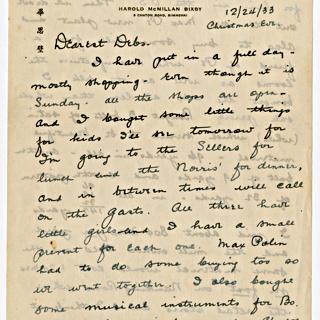 HAROLD McMILLAN BIXBY
2 CANTON ROAD, SHANGHAI
畢思璧
12/24/33
Christmas Eve.
Dearest Debs.
I have put in a full day -
mostly shopping - Even though it is
Sunday - all the shops are open -
and I bought some little things
for kids I'll see tomorrow for
I'm going to the Sellers for
lunch and the Norris' for dinner,
and in between times will call
on the Garts. All three have
little girls and I have a small
present for each one. Max Polin
had to do some buying too so
we went together. I also bought
some musical instruments for Bo.